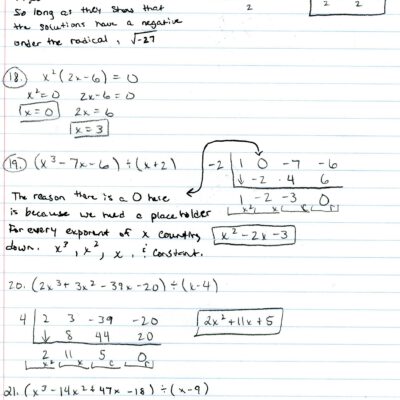 So long as they show that
the solutions have a negative
under the radical, √-27
2 2 2
18. x²(2x-6) = 0
x²=0 2x-6=0
x=0 2x=6
x=3
19. (x³-7x-6) ÷ (x+2)
-2 | 1 0 -7 -6
↓ -2 4 6
1 -2 -3 0
x² x c r
The reason there is a 0 here
is because we need a placeholder
For every exponent of x counting
down. x³, x², x, & constant.
x²-2x-3
20. (2x³+3x²-39x-20) ÷ (x-4)
4 | 2 3 -39 -20
↓ 8 44 20
2 11 5 0
x² x c r
2x²+11x+5
21. (x³-14x²+47x-18) ÷ (x-9)